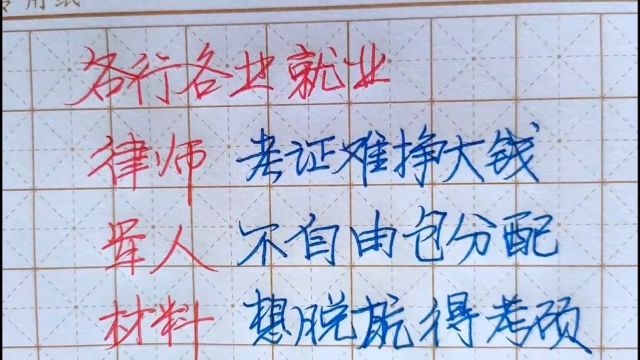 各行各业就业
律师 考证难挣大钱
军人 不自由包分配
材料 想脱航得考硕